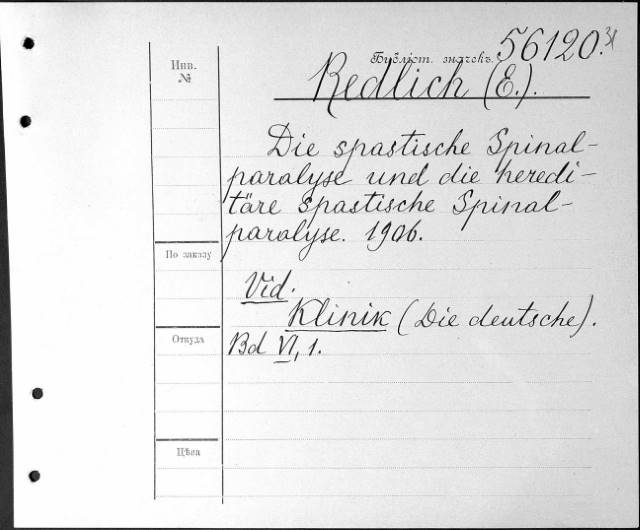 56120.31
Инв.
№
Библіот. значекъ.
Redlich (E.).
Die spastische Spinal-
paralyse und die heredi-
täre spastische Spinal-
paralyse. 1906.
По заказу
Vid.
Klinik (Die deutsche).
Откуда
Bd VI, 1.
Цѣна